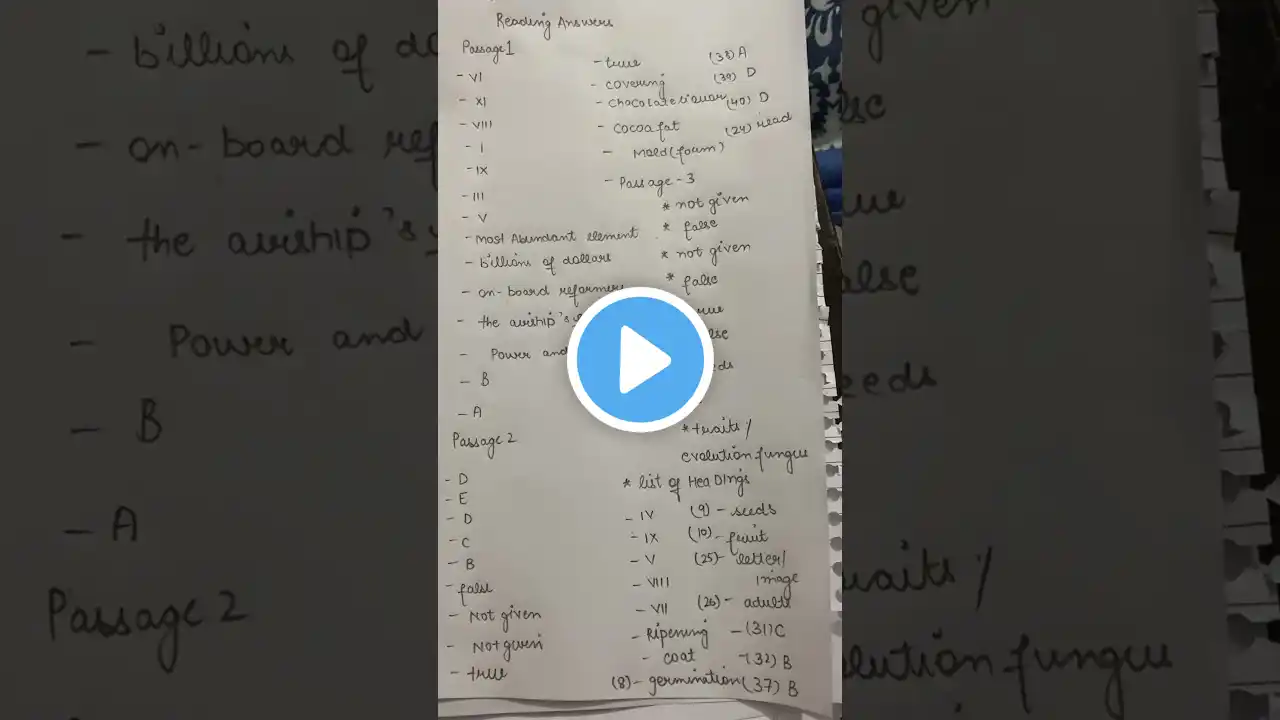 Reading Answers
Passage 1
- VI
- XI
- VIII
- I
- IX
- III
- V
- Most Abundant element
- billions of dollars
- on-board reformers
- the airship's
- Power and
- B
- A
Passage 2
- D
- E
- D
- C
- B
- false
- Not given
- Not given
- true
- true
- covering
- chocolate liquor
- cocoa fat
- Mold (foam)
- Passage - 3
* not given
* false
* not given
* false
* traits /
evolution fungus
* list of HeaDings
- IV
- IX
- V
- VIII
- VII
- Ripening
- coat
(8) - germination
(38) A
(39) D
(40) D
(24) read
(9) - seeds
(10) - fruit
(25) - letter/
image
(26) - adults
- (31) C
- (32) B
(37) B
- billions of do
- on-board ref
- the airship's
- Power and
- B
- A
Passage 2
given
eeds
raits /
olution fungus